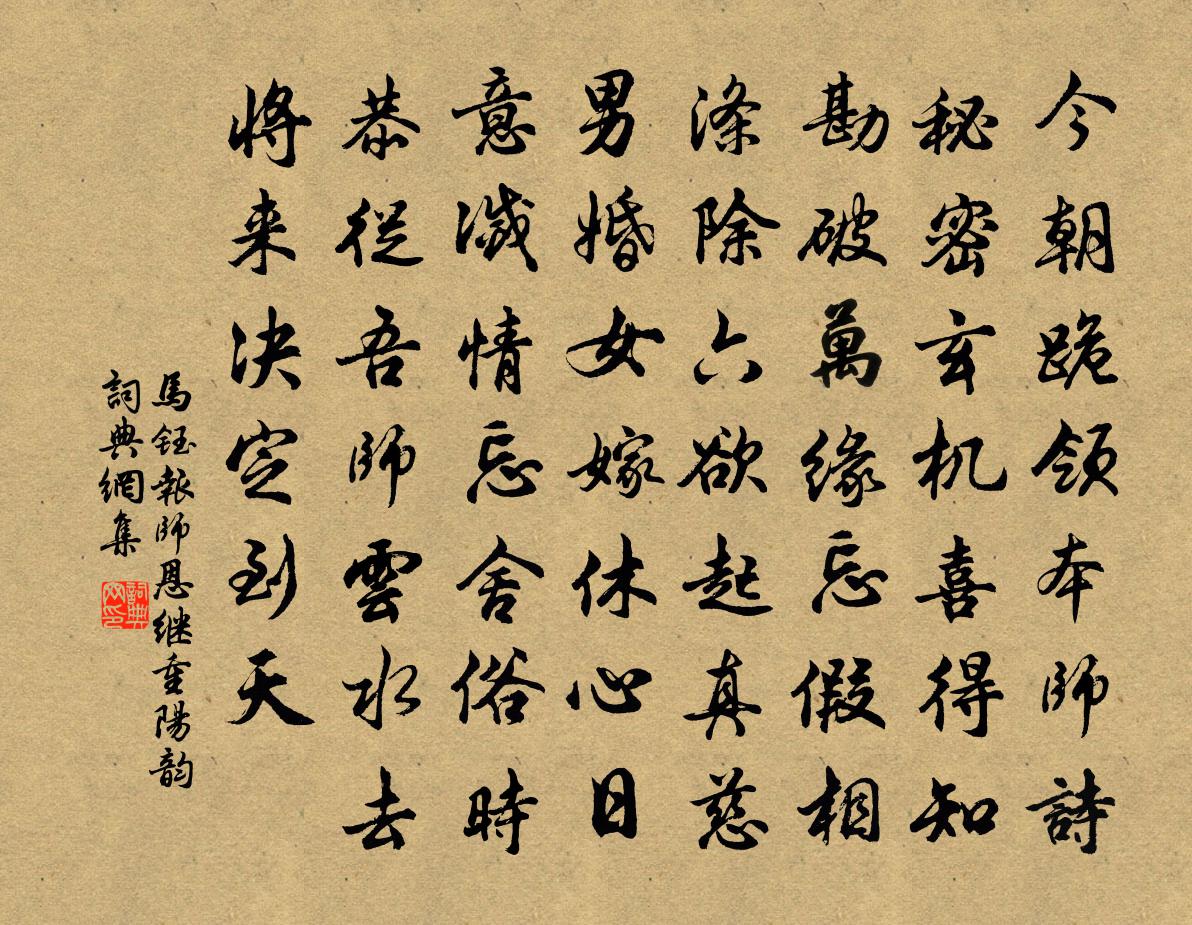 今朝跪领本師詩
秘密玄机喜得知
勘破萬缘忘假相
涤除六欲起真慈
男婚女嫁休心日
意滅情忘舍俗時
恭從吾師雲水去
將来决定到天
馬鈺報師恩继重陽韵
詞典網集
詞典网印